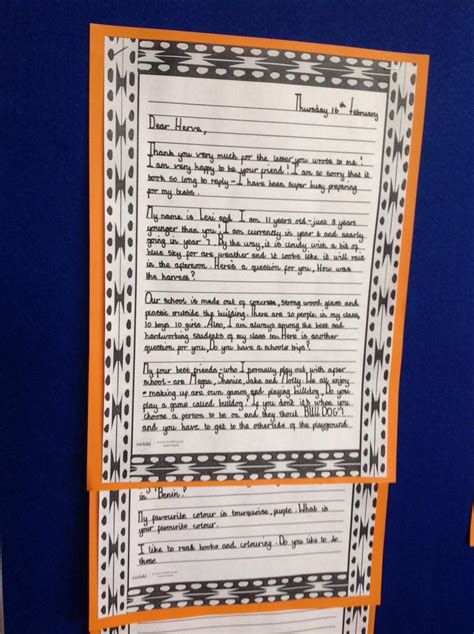 Thursday 16th February
Dear Herve,
Thank you very much for the letter you wrote to me!
I am very happy to be your friend! I am so sorry that it
took so long to reply - I have been super busy preparing
for my tests.
My name is Lexi and I am 11 years old - just 3 years
younger than you! I am currently in year 6 and nearly
going in year 7. By the way, it is cloudy with a bit of
blue sky for are weather and it looks like it will rain
in the afternoon. Here's a question for you, How was
the harvest?
Our school is made out of concrete, strong wood glass and
plastic outside the building. There are 20 people in my class,
10 boys 10 girls. Also, I am always among the best and
hardworking students of my class too. Here is another
question for you, Do you have a schools toys?
My four best friends - who I normally play out with after
school - are Megan, Shanice, Jake and Molly. We all enjoy
- making up are own games and playing bulldog. Do you
play a game called bulldog? If you don't it's when you
choose a person to be on and they shout BULLDOG!
and you have to get to the otherside of the playground
twinkl
in Benin?
My favourite colour is tourquoise, purple. What is
your favourite colour.
I like to read books and colouring. Do you like to do
these
twinkl